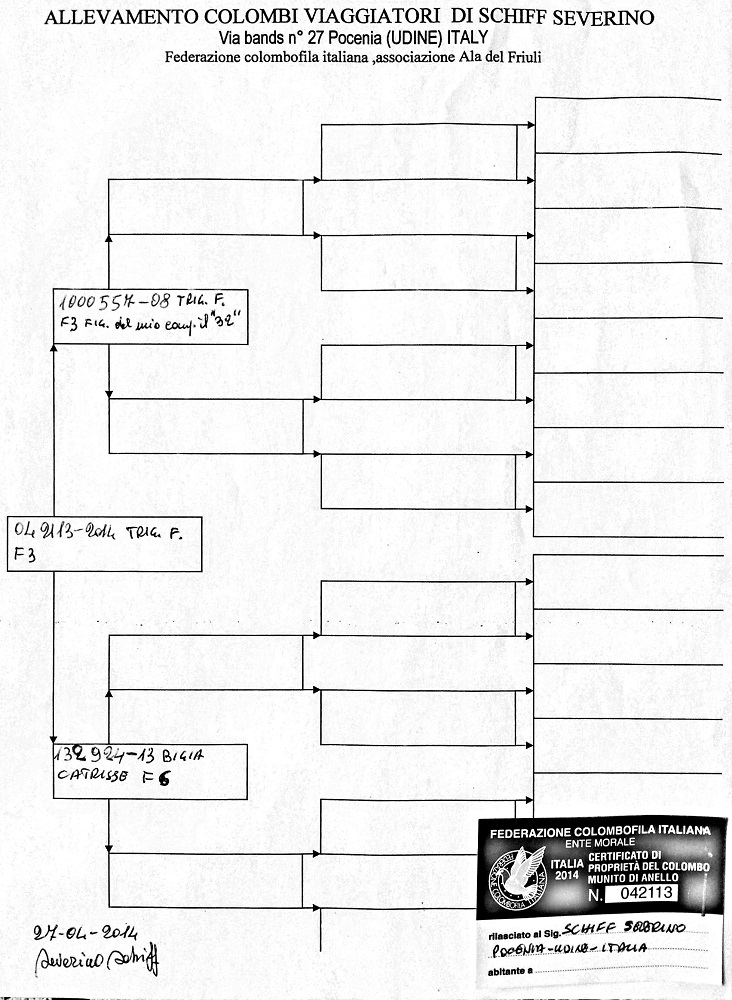 ALLEVAMENTO COLOMBI VIAGGIATORI DI SCHIFF SEVERINO
Via bands n° 27 Pocenia (UDINE) ITALY
Federazione colombofila italiana ,associazione Ala del Friuli
1000557-08 TRIG. F.
F3 FIG. del mio camp. il "32"
042113-2014 TRIG. F.
F3
132924-13 BIGIA
CATRISSE F6
27-04-2014
Severino Schiff
FEDERAZIONE COLOMBOFILA ITALIANA
ENTE MORALE
ITALIA
2014
CERTIFICATO DI
PROPRIETÀ DEL COLOMBO
MUNITO DI ANELLO
N. 042113
rilasciato al Sig. SCHIFF SEVERINO
POCENIA-UDINE-ITALIA
abitante a